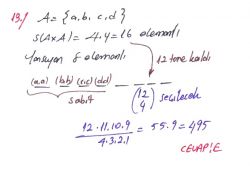 13./ A = {a,b,c,d}
s(A×A) = 4.4 = 16 elemanlı
Yansıyan 8 elemanlı
12 tane kaldı
(a,a) (b,b) (c,c) (d,d) _ _ _ _
sabit
(12 4) seçilecek
12.11.10.9 / 4.3.2.1 = 55.9 = 495
CEVAP:E